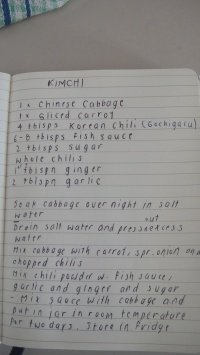 KIMCHI
1 x Chinese Cabbage
1 x Sliced Carrot
4 tblsps Korean Chili (Gochigaru)
6-8 tblsps Fish sauce
2 tblsps sugar
whole chilis
1 tblspn ginger
2 tblspn garlic
Soak cabbage over night in salt
water
Drain salt water and press out excess
water
Mix cabbage with carrot, spr. onion and
chopped chilis
Mix chili powder w. fish sauce,
garlic and ginger and sugar
- Mix sauce with cabbage and
put in jar in room temperature
for two days. Store in fridge